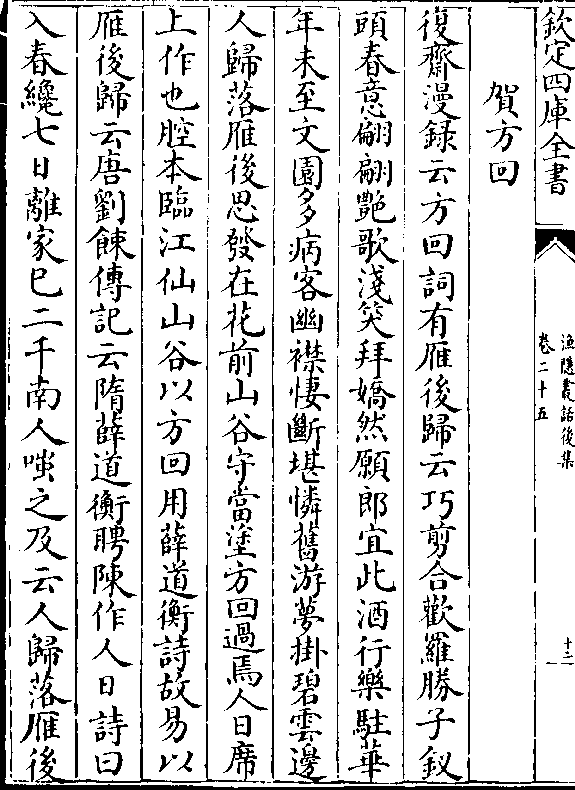 欽定四庫全書
漁隱叢話後集
卷二十五
十二
賀方回
復齋漫錄云方回詞有雁後歸云巧剪合歡羅勝子釵
頭春意翩翩艷歌淺笑拜嬌然願郎宜此酒行樂駐華
年未至文園多病客幽襟悽斷堪憐舊游夢掛碧雲邊
人歸落雁後思發在花前山谷守當塗方回過焉人日席
上作也腔本臨江仙山谷以方回用薛道衡詩故易以
雁後歸云唐劉餗傳記云隋薛道衡聘陳作人日詩曰
入春纔七日離家已二千南人嗤之及云人歸落雁後